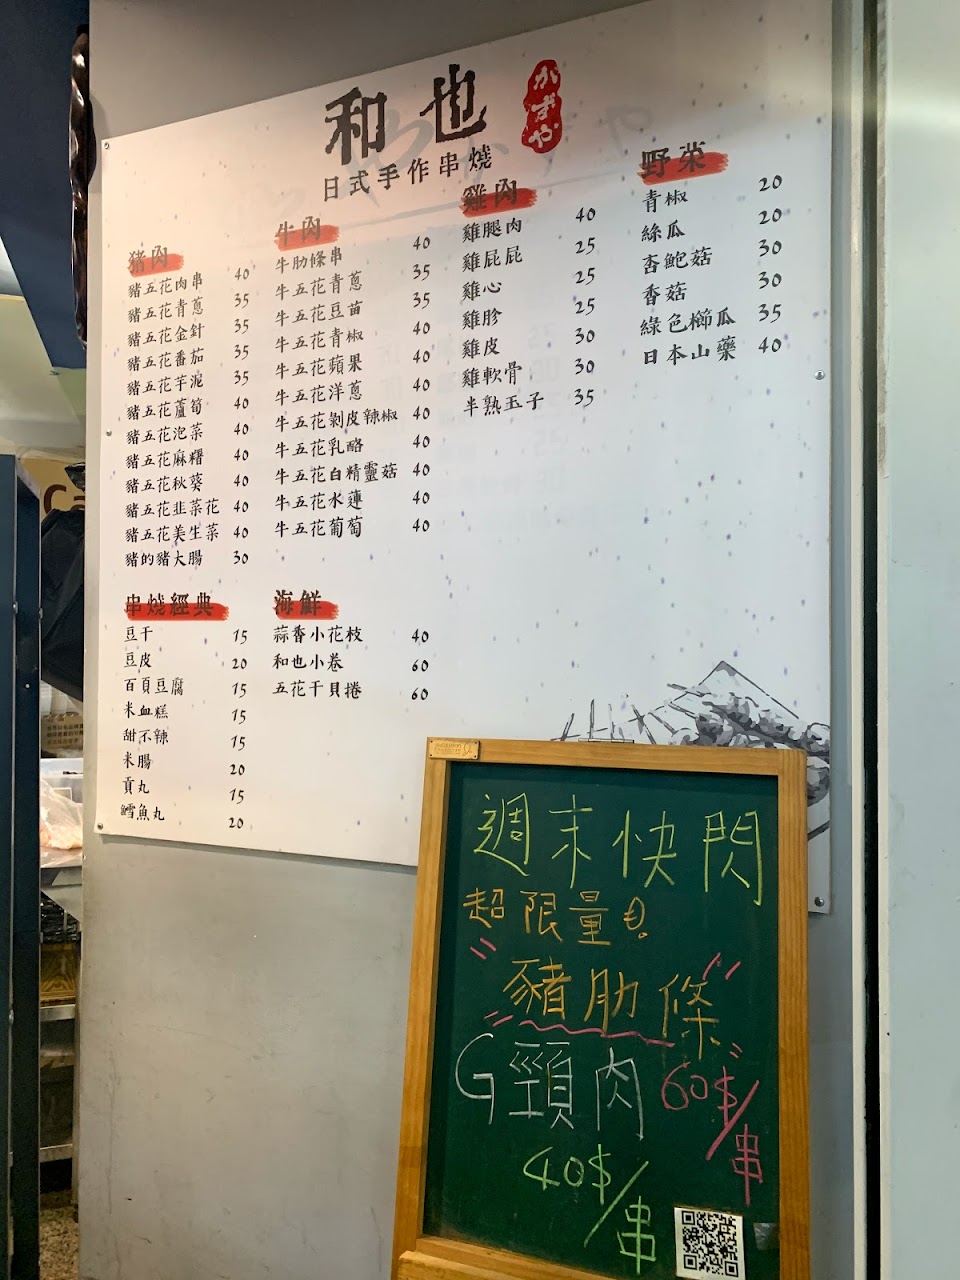 和也
かずや
日式手作串燒
豬肉
豬五花肉串 40
豬五花青蔥 35
豬五花金針 35
豬五花番茄 35
豬五花芋泥 35
豬五花蘆筍 40
豬五花泡菜 40
豬五花麻糬 40
豬五花秋葵 40
豬五花韭菜花 40
豬五花美生菜 40
豬的豬大腸 30
牛肉
牛肋條串 40
牛五花青蔥 35
牛五花豆苗 35
牛五花青椒 40
牛五花蘋果 40
牛五花洋蔥 40
牛五花剝皮辣椒 40
牛五花乳酪 40
牛五花白精靈菇 40
牛五花水蓮 40
牛五花葡萄 40
雞肉
雞腿肉 40
雞屁屁 25
雞心 25
雞胗 25
雞皮 30
雞軟骨 30
半熟玉子 35
野菜
青椒 20
絲瓜 20
杏鮑菇 30
香菇 30
綠色櫛瓜 35
日本山藥 40
串燒經典
豆干 15
豆皮 20
百頁豆腐 15
米血糕 15
甜不辣 15
米腸 20
貢丸 15
鱈魚丸 20
海鮮
蒜香小花枝 40
和也小卷 60
五花干貝捲 60
週末快閃
超限量
豬肋條
60$/串
G頸肉
40$/串